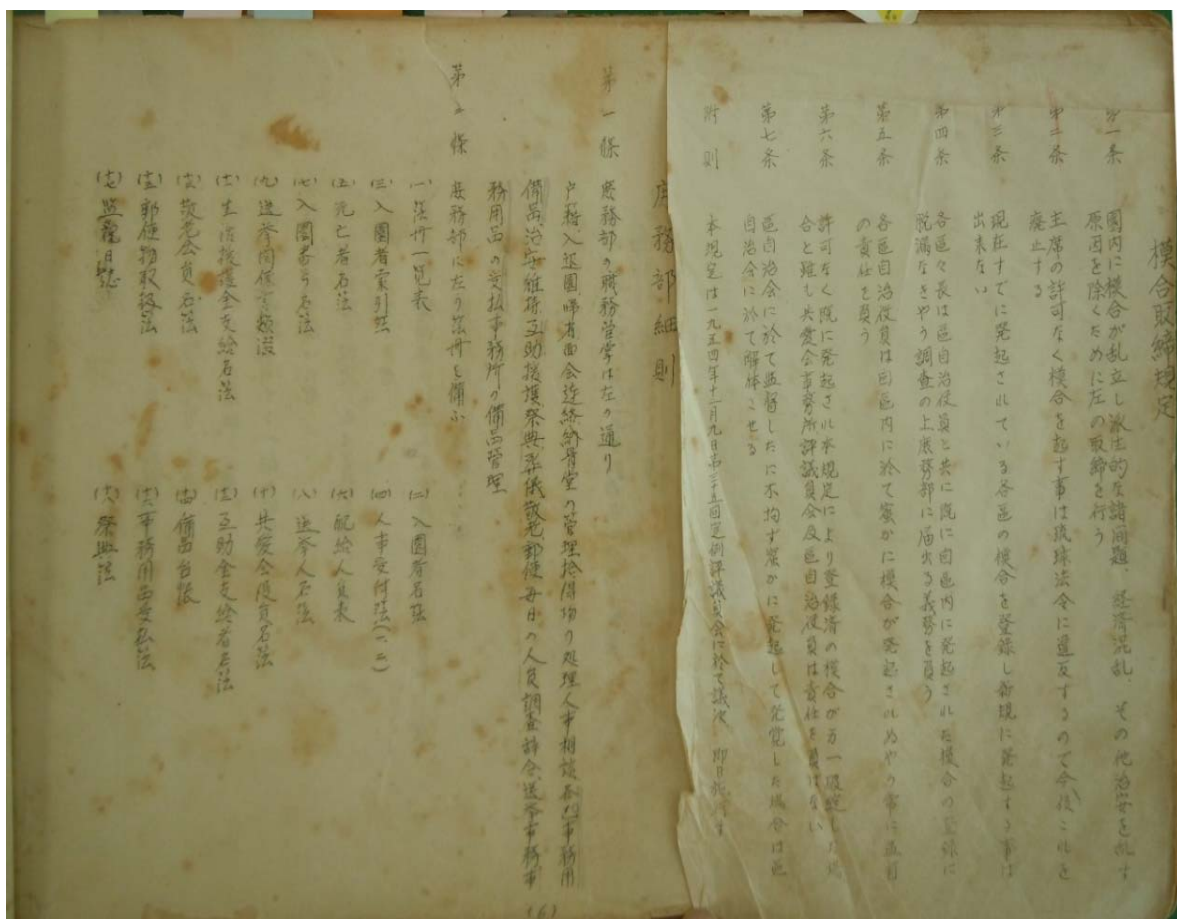 模合取締規定
第一条 園内に模合が乱立し派生的な諸問題、経済混乱、その他治安を乱す
原因を除くために左の取締を行う
第二条 主席の許可なく模合を起す事は琉球法令に違反するので今後これを
廃止する
第三条 現在すでに発起されている各区の模合を登録し新規に発起する事は
出来ない
第四条 各区々長は区自治役員と共に既に同区内に発起された模合の登録に
脱漏なきやう調査の上庶務部に届出る義務を負う
第五条 各区自治役員は同区内に於て密かに模合が発起されぬやう常に
の責任を負う
第六条 許可なく既に発起され本規定により登録済の模合が万一破
合と雖も共愛会事務所評議員会及区自治役員は責任を負はない
第七条 区自治会に於て監督したに不拘ず密かに発起して発覚した場合は区
自治会に於て解体させる
附則 本規定は一九五四年十一月九日第三十五回定例評議員会に於て議決 即日施行す
庶務部細則
第一條 庶務部の職務管掌は左の通り
戸籍入退園帰省面会連絡納骨堂の管理拾得物の処理人事相談 事務用
備品治安維持互助援護祭典葬儀敬老郵便毎日の人員調査辞令選挙事務事
務用品の受払事務所の備品管理
第二條 庶務部に左の簿冊を備ふ
(一)簿冊一覧表 (二)入園者名簿
(三)入園者索引簿 (四)人事受付簿(一、二)
(五)死亡者名簿 (六)配給人員表
(七)入園番号名簿 (八)選挙人名簿
(九)選挙関係書類簿 (十)共愛会役員名簿
(十一)生活援護金支給名簿 (十二)互助金支給者名簿
(十三)敬老会員名簿 (十四)備品台帳
(十五)郵便物取扱簿 (十六)事務用品受払簿
(十七)監視日誌 (十八)祭典簿
(6)